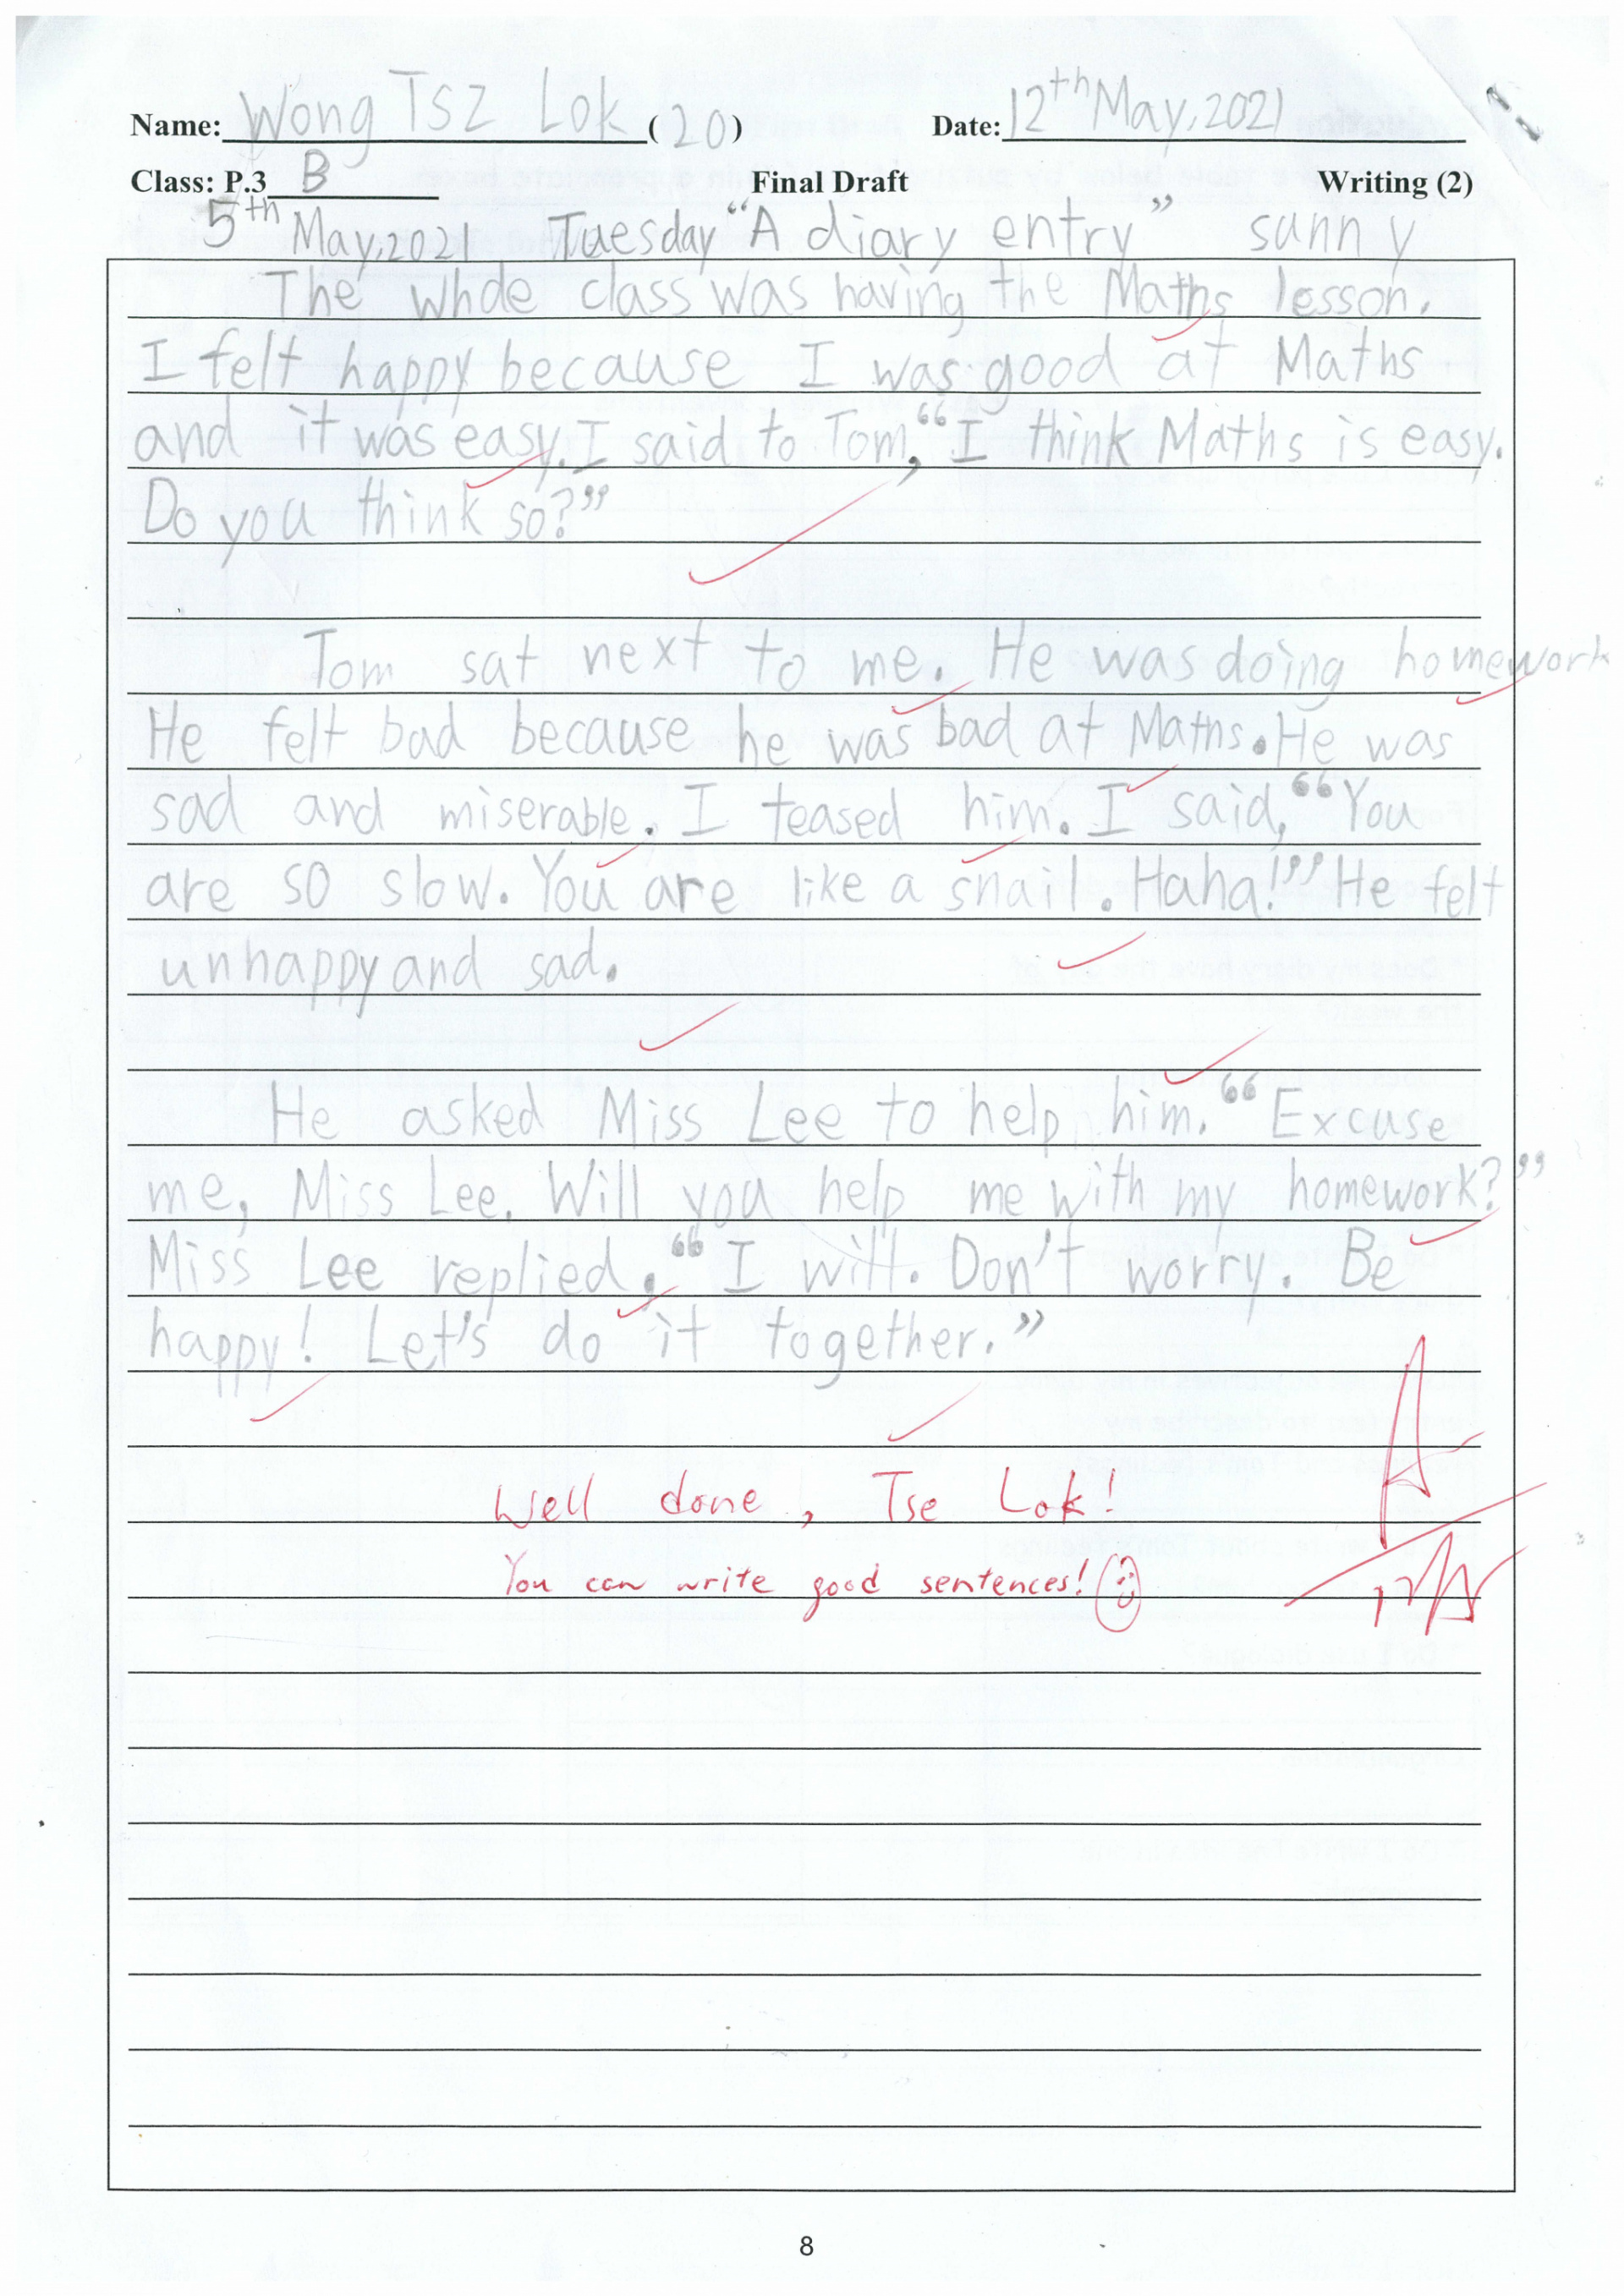 Name: Wong Tsz Lok (20) Date: 12th May, 2021
Class: P.3 B Final Draft Writing (2)
5th May, 2021 Tuesday “A diary entry” sunny
The whole class was having the Maths lesson.
I felt happy because I was good at Maths
and it was easy. I said to Tom, “I think Maths is easy.
Do you think so?”
Tom sat next to me. He was doing homework
He felt bad because he was bad at Maths. He was
sad and miserable. I teased him. I said, “You
are so slow. You are like a snail. Haha!” He felt
unhappy and sad.
He asked Miss Lee to help him. “Excuse
me, Miss Lee. Will you help me with my homework?”
Miss Lee replied, “I will. Don't worry. Be
happy! Let's do it together.”
A
Well done, Tse Lok!
You can write good sentences!
8